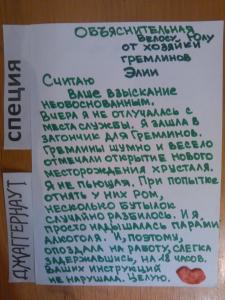 ОБЪЯСНИТЕЛЬНАЯ
Велосу Юлу
от хозяйки
гремлинов
Элии
Считаю
Ваше взыскание
необоснованным.
Вчера я не отлучалась с
места службы. Я зашла в
загончик для гремлинов.
Гремлины шумно и весело
отмечали открытие нового
месторождения хрусталя.
Я не пьющая. При попытке
отнять у них ром,
несколько бутылок
случайно разбилось. И я
просто надышалась парами
алкоголя. И, поэтому,
опоздала на работу, слегка
задержавшись, на 18 часов.
Ваших инструкций
не нарушала. Целую.
специя
ДЖАГГЕРНАУТ